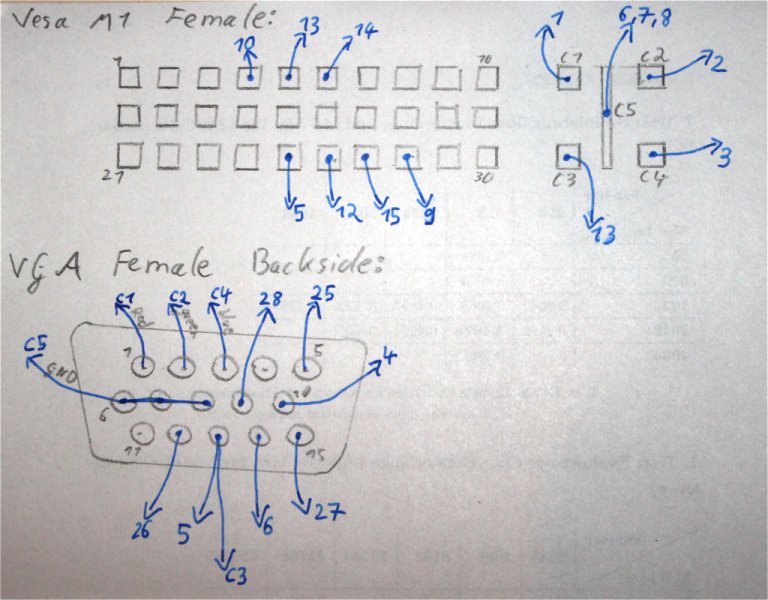 Vesa M1 Female:
1 6,7,8
10 13 14
1 10 C1 C2 2
C5
3
21 30 C3 C4
5 12 15 9
13
VGA Female Backside:
C1 C2 C4 28 25
Red green blue
C5 1 5 4
GND
6 10
11 15
26 5 6 27
C3